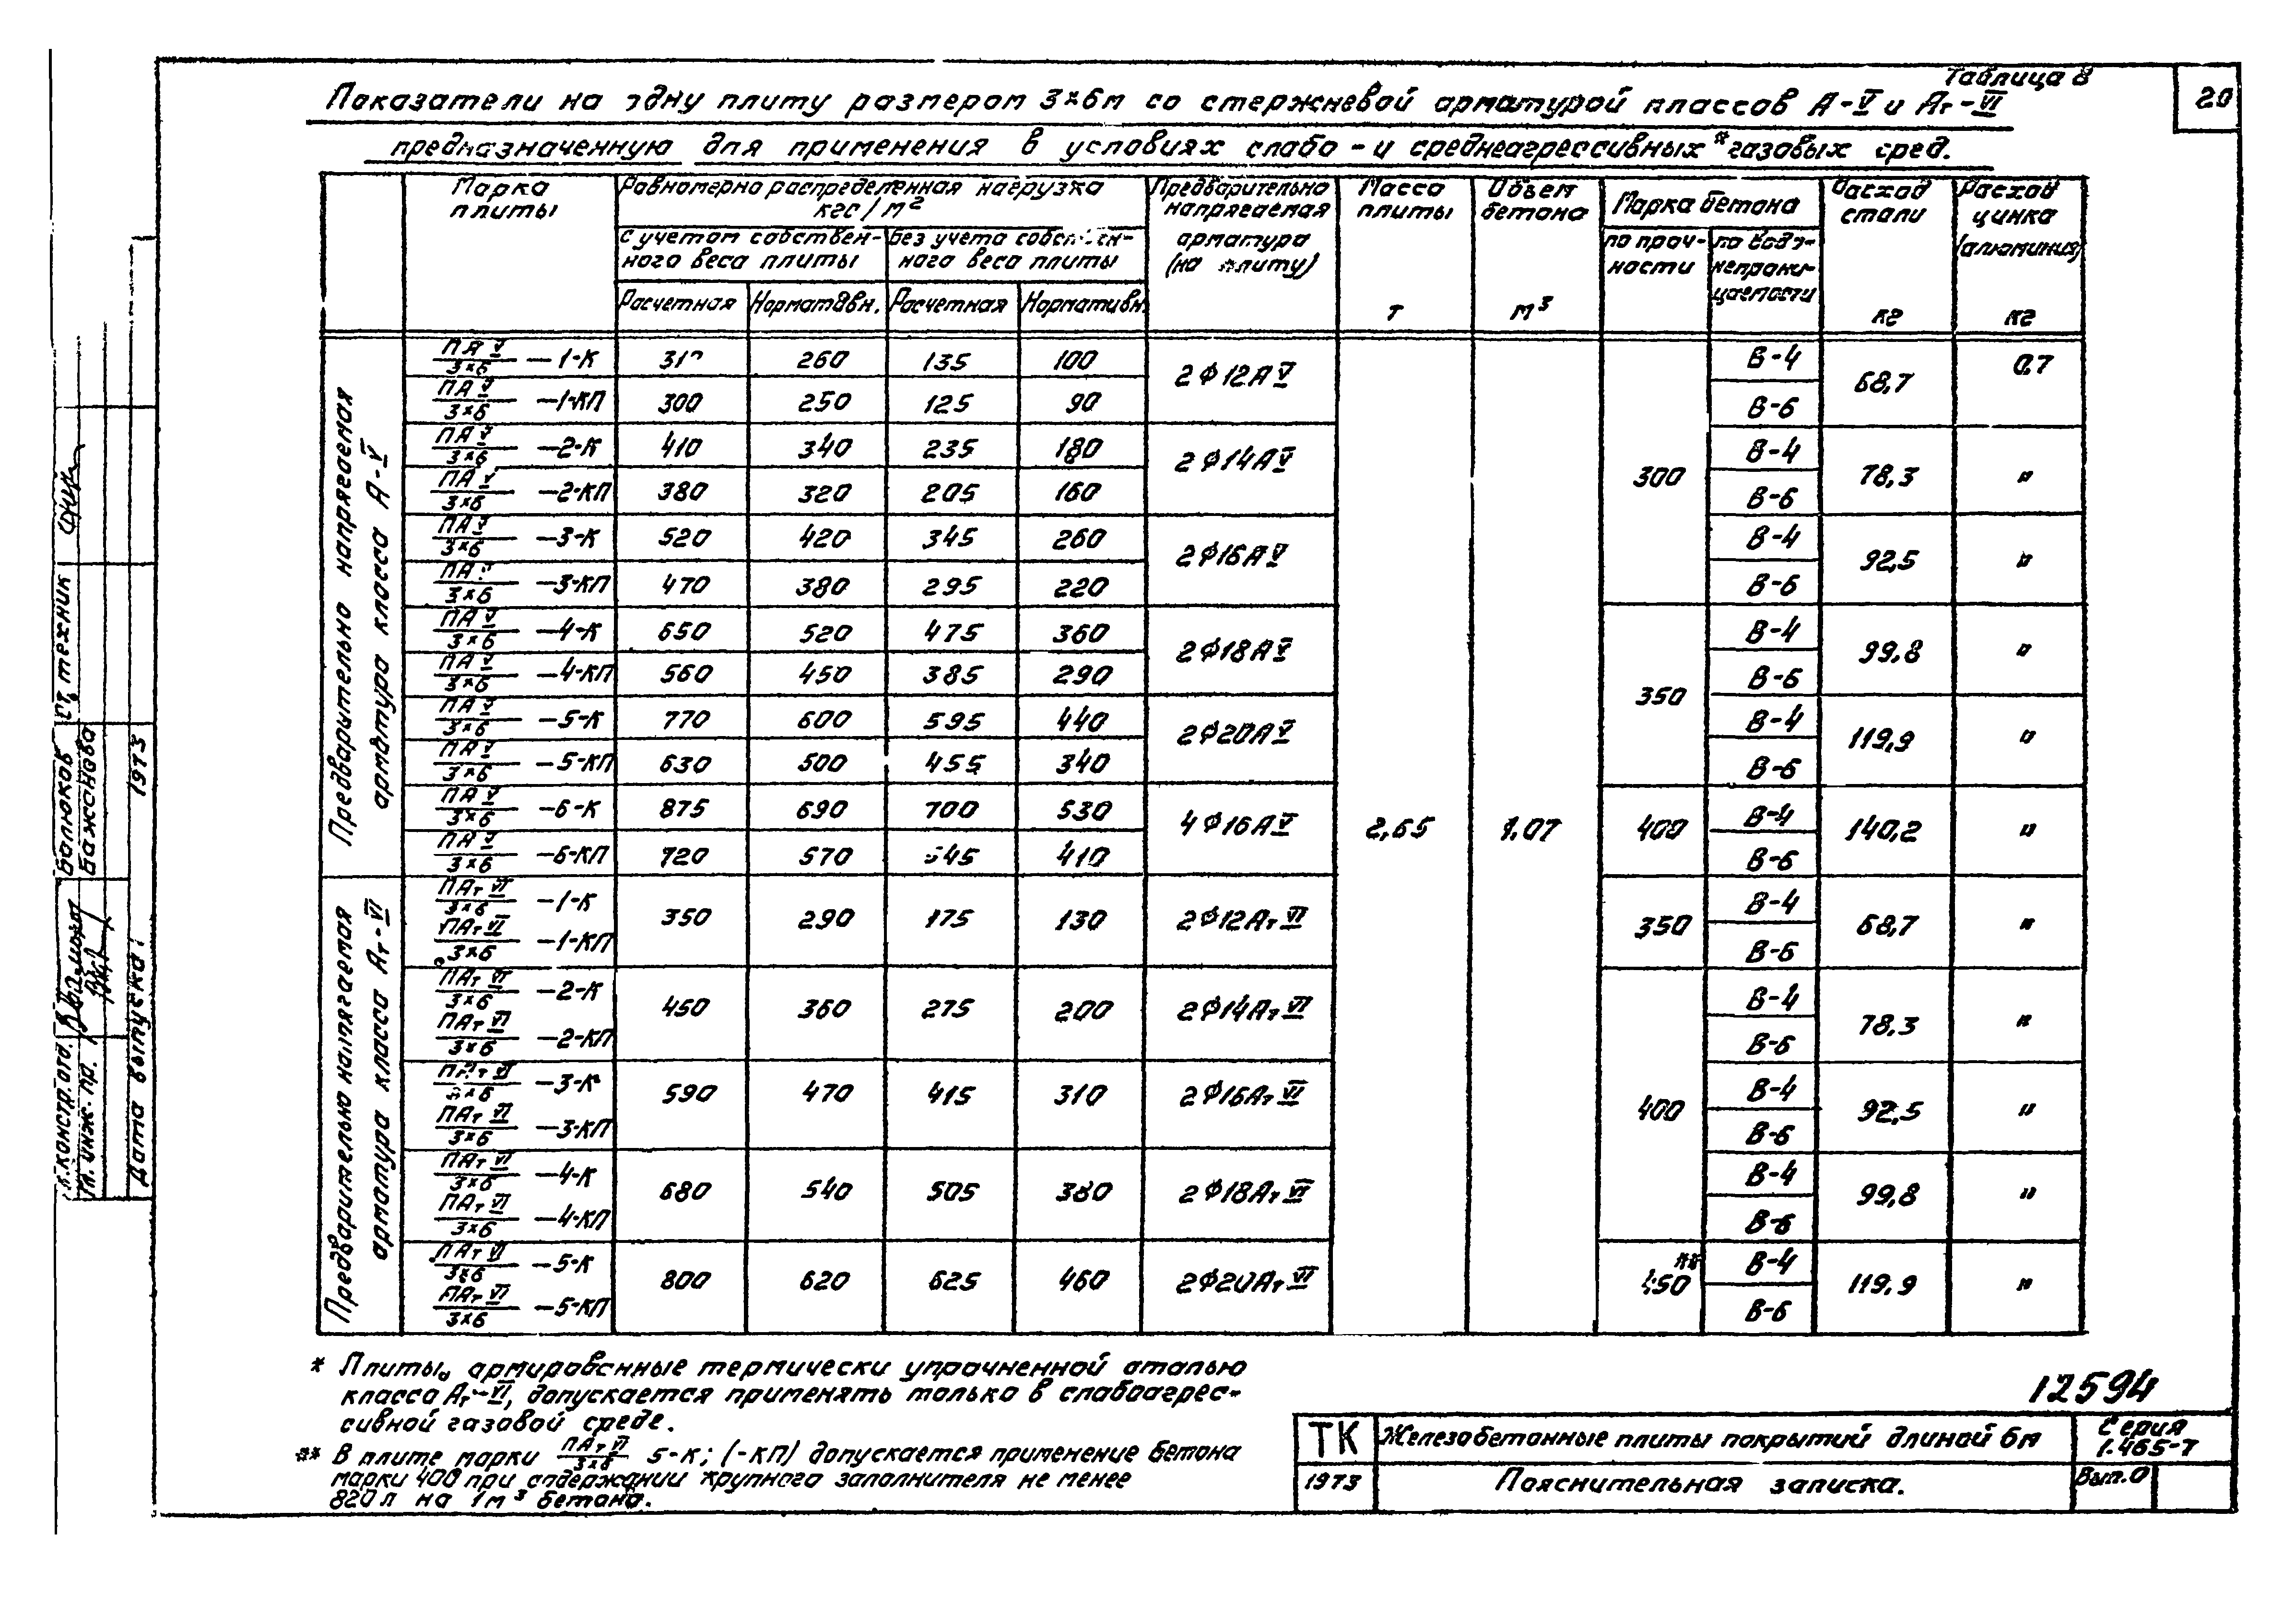 Таблица 8
20
Показатели на одну плиту размером 3×6м со стержневой арматурой классов А-V и Ат-VI
предназначенную для применения в условиях слабо - и среднеагрессивных* газовых сред.
Марка плиты
Равномерно распределенная нагрузка кгс/м²
с учетом собственного веса плиты
без учета собственного веса плиты
Расчетная Нормативн. Расчетная Нормативн.
Предварительно напрягаемая арматура (на плиту)
Масса плиты т
Объем бетона м³
Марка бетона
по прочности
по водонепроницаемости
Расход стали кг
Расход цинка (алюминия) кг
Предварительно напрягаемая арматура класса А-V
ПАV/3×6 -1-К 310 260 135 100 2Ф12АV 2,65 1.07 300 В-4 68,7 0,7
ПАV/3×6 -1-КП 300 250 125 90 В-6
ПАV/3×6 -2-К 410 340 235 180 2Ф14АV В-4 78,3 "
ПАV/3×6 -2-КП 380 320 205 160 В-6
ПАV/3×6 -3-К 520 420 345 260 2Ф16АV В-4 92,5 "
ПАV/3×6 -3-КП 470 380 295 220 В-6
ПАV/3×6 -4-К 650 520 475 360 2Ф18АV 350 В-4 99,8 "
ПАV/3×6 -4-КП 560 450 385 290 В-6
ПАV/3×6 -5-К 770 600 595 440 2Ф20АV В-4 119,9 "
ПАV/3×6 -5-КП 630 500 455 340 В-6
ПАV/3×6 -6-К 875 690 700 530 4Ф16АV 400 В-4 140,2 "
ПАV/3×6 -6-КП 720 570 545 410 В-6
Предварительно напрягаемая арматура класса Ат-VI
ПАтVI/3×6 -1-К 350 290 175 130 2Ф12АтVI 350 В-4 68,7 "
ПАтVI/3×6 -1-КП В-6
ПАтVI/3×6 -2-К 450 360 275 200 2Ф14АтVI 400 В-4 78,3 "
ПАтVI/3×6 -2-КП В-6
ПАтVI/3×6 -3-К 590 470 415 310 2Ф16АтVI В-4 92,5 "
ПАтVI/3×6 -3-КП В-6
ПАтVI/3×6 -4-К 680 540 505 380 2Ф18АтVI В-4 99,8 "
ПАтVI/3×6 -4-КП В-6
ПАтVI/3×6 -5-К 800 620 625 460 2Ф20АтVI 450** В-4 119,9 "
ПАтVI/3×6 -5-КП В-6
* Плиты, армированные термически упрочненной сталью
класса Ат-VI, допускается применять только в слабоагрес-
сивной газовой среде.
** В плите марки ПАтVI/3×6 5-К; (-КП) допускается применение бетона
марки 400 при содержании крупного заполнителя не менее
820л на 1м³ бетона.
12594
ТК
1973
Железобетонные плиты покрытий длиной 6м
Пояснительная записка.
Серия
1.465-7
Вып.0
Гл.констр.отд.
Гл. инж. пр.
Дата выпуска:
1973
Бажанова
Ст. техник